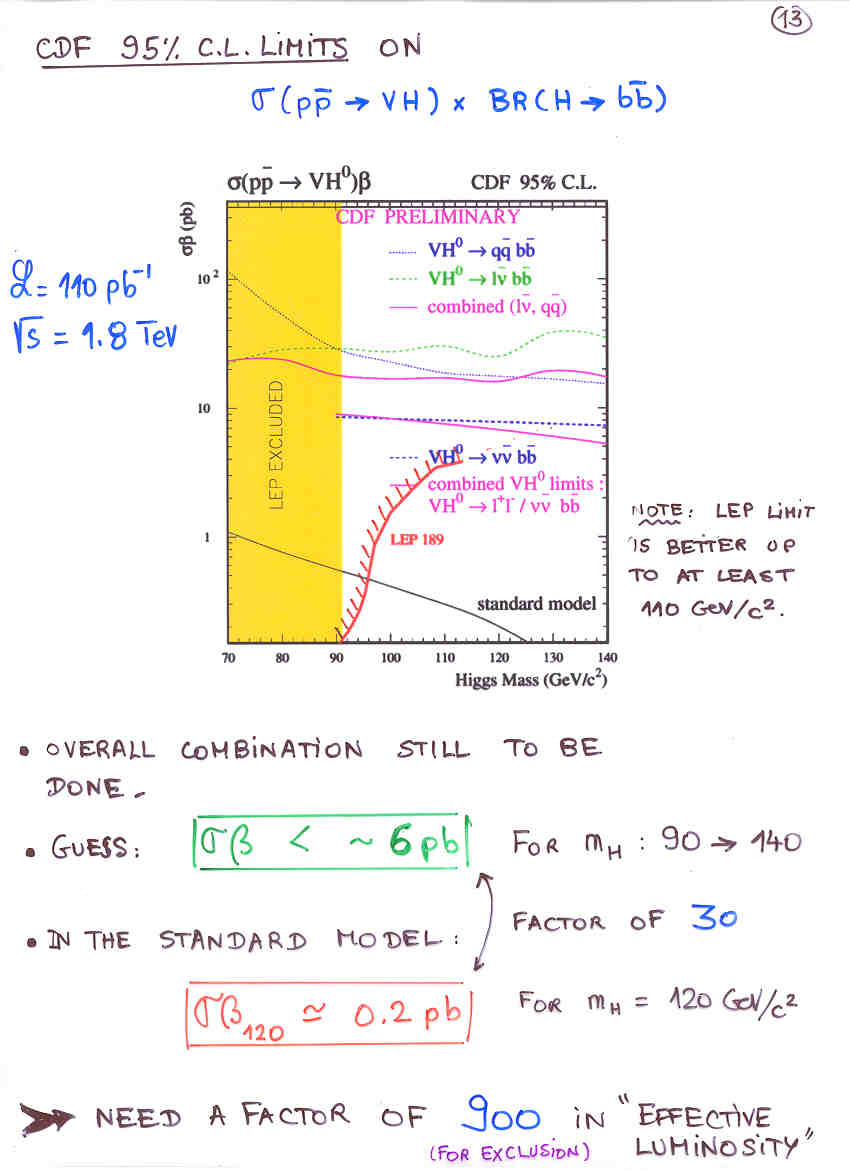 13
CDF 95% C.L. LIMITS ON
σ(pp̄ → VH) x BR(H → bb̄)
σ(pp̄ → VH⁰)β CDF 95% C.L.
σβ (pb)
CDF PRELIMINARY
VH⁰ → qq̄ bb̄
VH⁰ → lν̄ bb̄
combined (lν̄, qq̄)
ℒ = 110 pb⁻¹
√s = 1.8 TeV
10²
10
1
LEP EXCLUDED
VH⁰ → νν̄ bb̄
combined VH⁰ limits :
VH⁰ → l⁺l⁻ / νν̄ bb̄
LEP 189
standard model
70 80 90 100 110 120 130 140
Higgs Mass (GeV/c²)
NOTE: LEP LIMIT
IS BETTER UP
TO AT LEAST
110 GeV/c².
• OVERALL COMBINATION STILL TO BE
DONE.
• GUESS: σβ < ~ 6 pb FOR m_H : 90 → 140
FACTOR OF 30
• IN THE STANDARD MODEL:
σβ₁₂₀ ≃ 0.2 pb FOR m_H = 120 GeV/c²
➤ NEED A FACTOR OF 900 IN "EFFECTIVE
LUMINOSITY"
(FOR EXCLUSION)